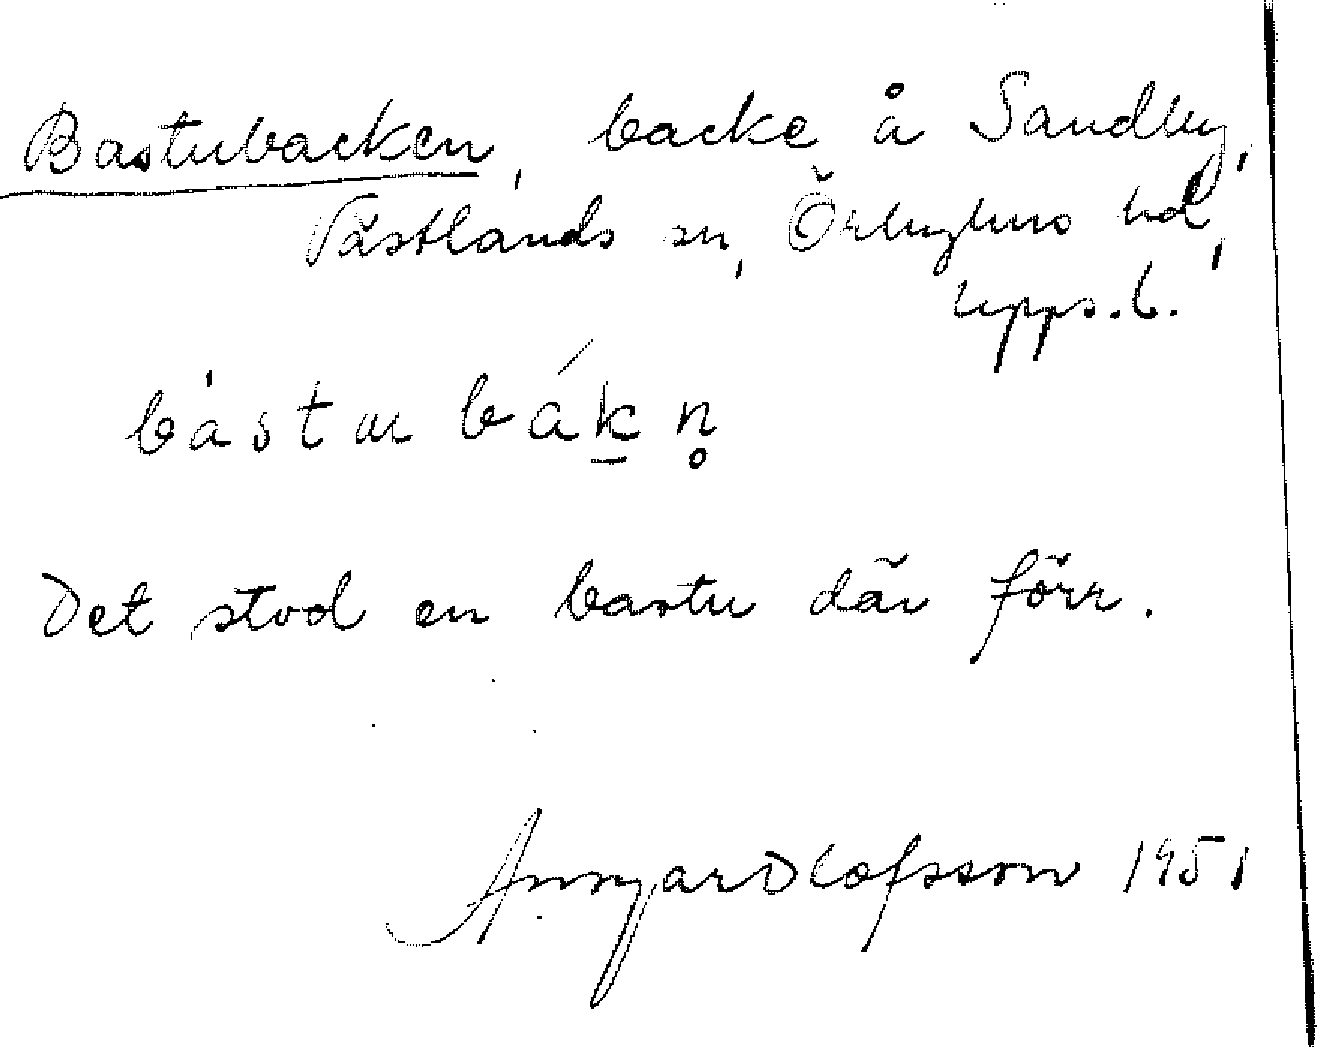 Bastubacken, backe å Sandby,
Västlands sn, Örbyhus hd,
Upps. l.
bástu bákn̥
Det stod en bastu där förr.
Olofsson 1951